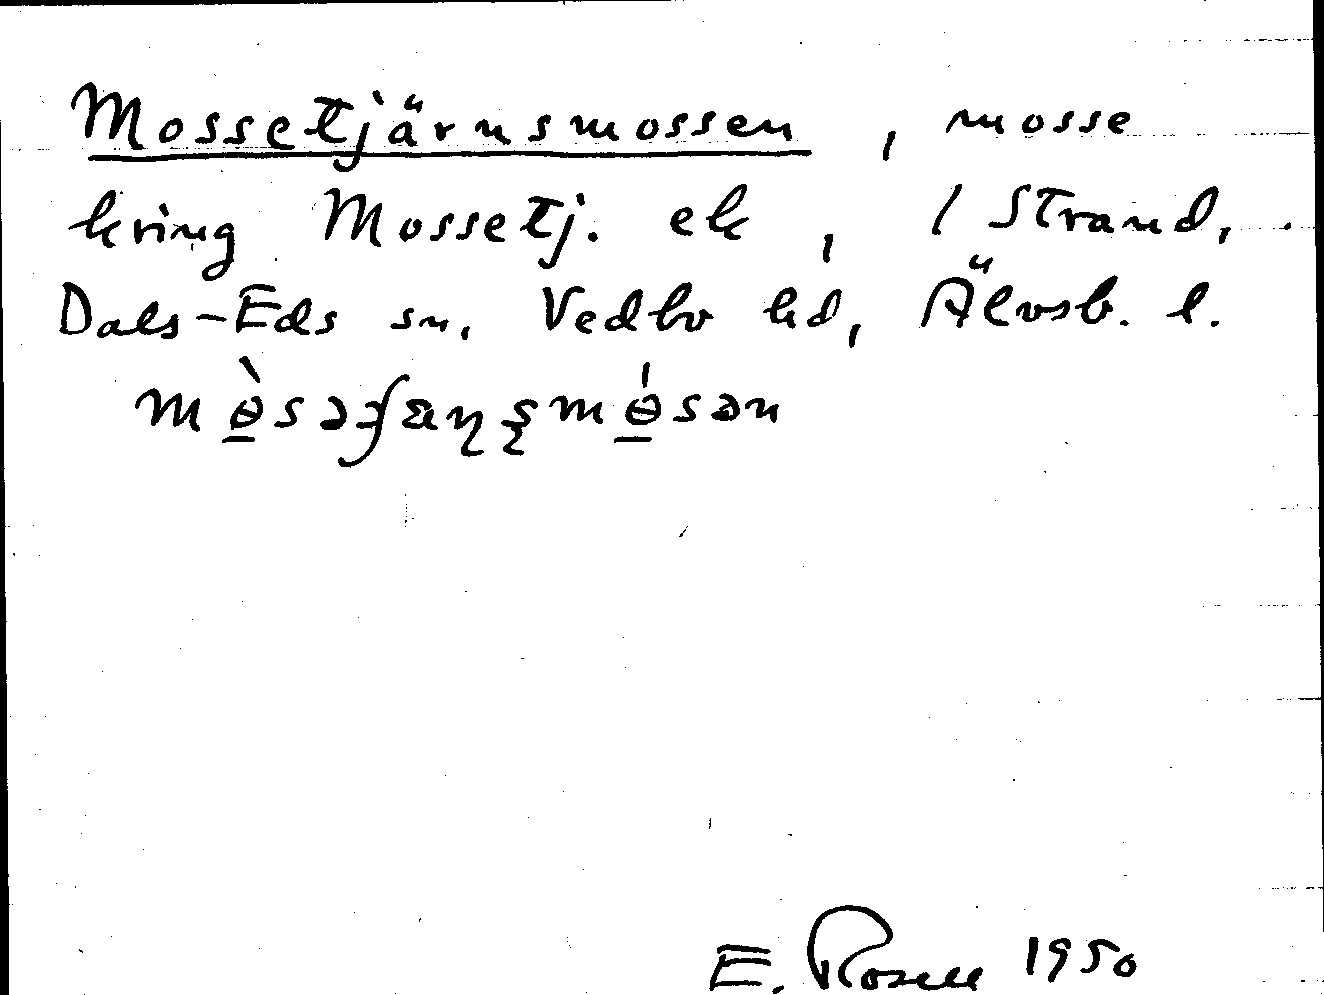 Mossetjärnsmossen, mosse
kring Mossetj. ek, / Strand,
Dals-Eds sn, Vedbo hd, Älvsb. l.
E. Rosell 1950